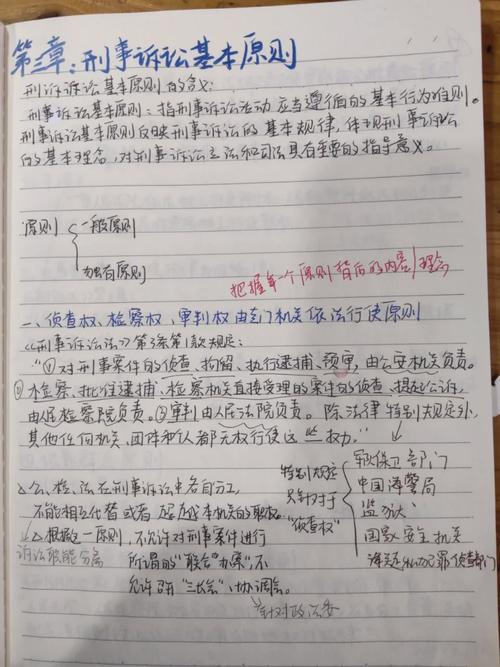 第三章:刑事诉讼基本原则
刑诉诉讼基本原则的含义:
刑事诉讼基本原则:指刑事诉讼活动应当遵循的基本行为准则。
刑事诉讼基本原则反映刑事诉讼的基本规律,体现刑事诉讼
的基本理念,对刑事诉讼立法和司法具有重要的指导意义。
原则
一般原则
独有原则
把握每一个原则背后的内容/理念
一、侦查权、检察权、审判权由专门机关依法行使原则
《刑事诉讼法》第3条第1款规定:
"①对刑事案件的侦查、拘留、执行逮捕、预审,由公安机关负责。
②检察、批准逮捕、检察机关直接受理的案件的侦查、提起公诉,
由人民检察院负责。③审判由人民法院负责。除法律特别规定外,
其他任何机关、团体和个人都无权行使这些权力。"
特别规定
只针对于
"侦查权"
军队保卫部门
中国海警局
监狱
国家安全机关
海关走私犯罪侦查部门
△公、检、法在刑事诉讼中各自分工,
不能相互代替或者超越本机关的职权。
△根据这一原则,不允许对刑事案件进行
诉讼职能分离
所谓的"联合办案",不
允许召开"三长会"、协调会。
针对政法委